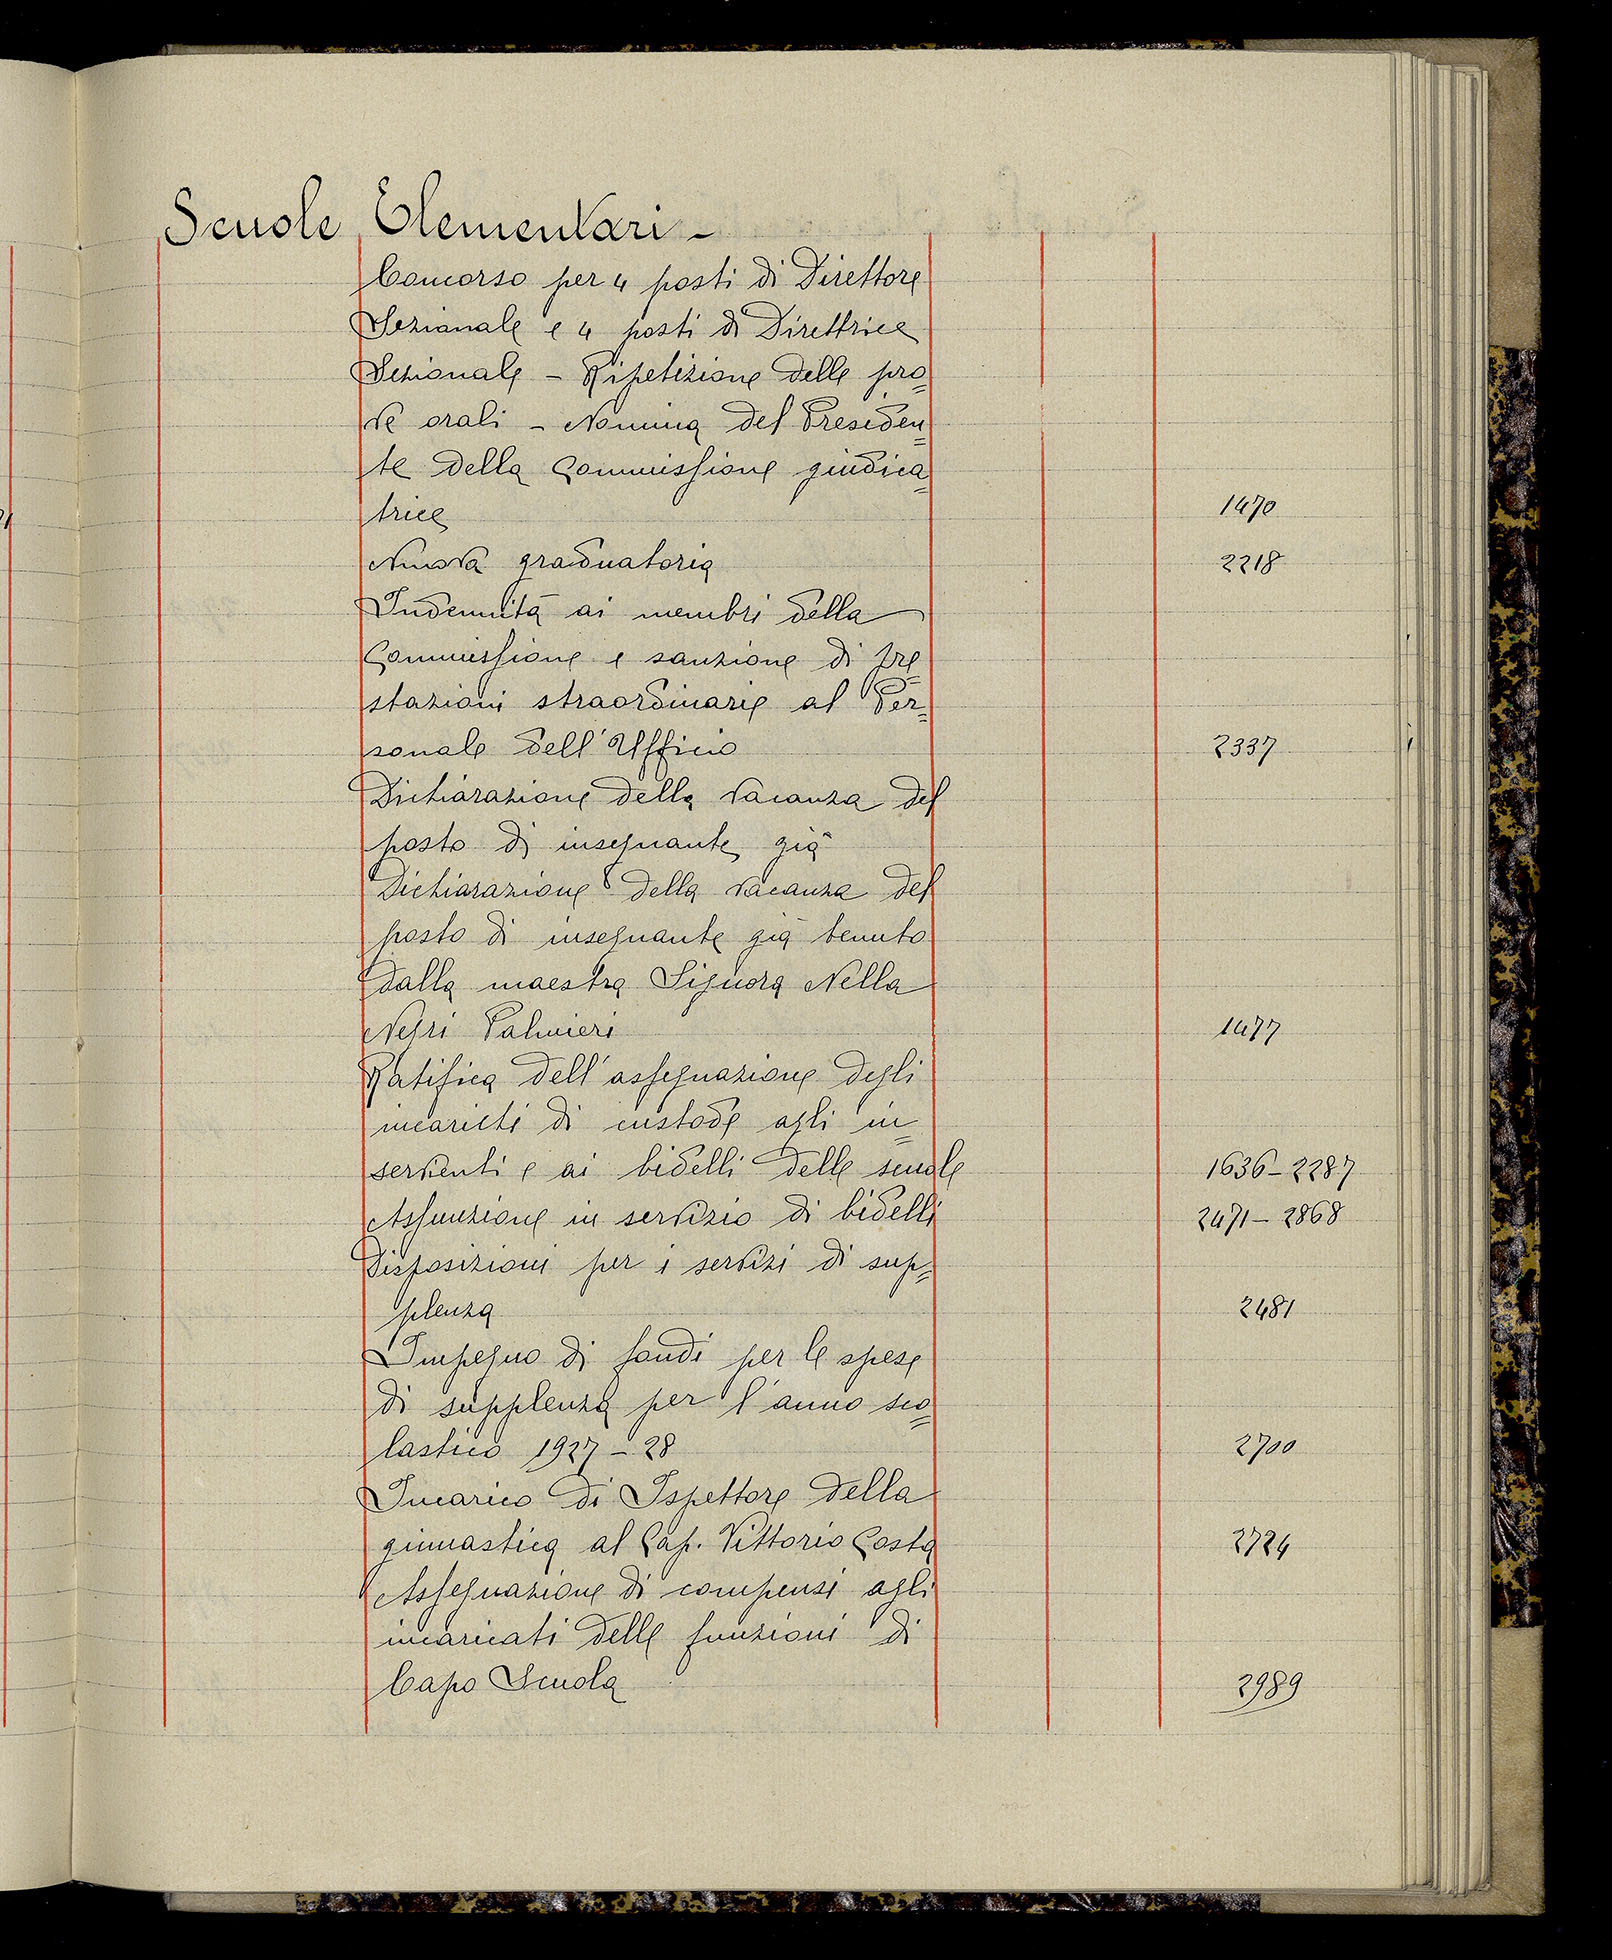 Scuole Elementari -
Concorso per 4 posti di Direttore
Sezionale e 4 posti di Direttrice
Sezionale - Ripetizione delle pro=
ve orali - Nomina del Presiden=
te della Commissione giudica=
trice 1470
Nuova graduatoria 2218
Indennità ai membri della
Commissione e sanzione di pre=
stazioni straordinarie al Per=
sonale dell'Ufficio 2337
Dichiarazione della vacanza del
posto di insegnante già
Dichiarazione della vacanza del
posto di insegnante già tenuto
dalla maestra Signora Nella
Negri Palmieri 1477
Ratifica dell'assegnazione degli
incarichi di custode agli in=
servienti e ai bidelli delle scuole 1636-2287
Assunzione in servizio di bidelli 2471-2868
Disposizioni per i servizi di sup=
plenza 2481
Impegno di fondi per le spese
di supplenza per l'anno sco=
lastico 1927-28 2700
Incarico di Ispettore della
ginnastica al Cap. Vittorio Costa 2724
Assegnazione di compensi agli
incaricati delle funzioni di
Capo Scuola 2989